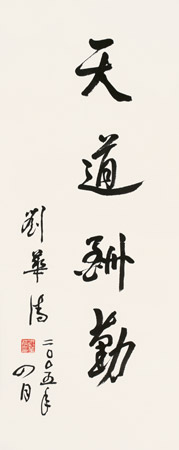 天道酬勤
劉華清
二〇〇五年
四月